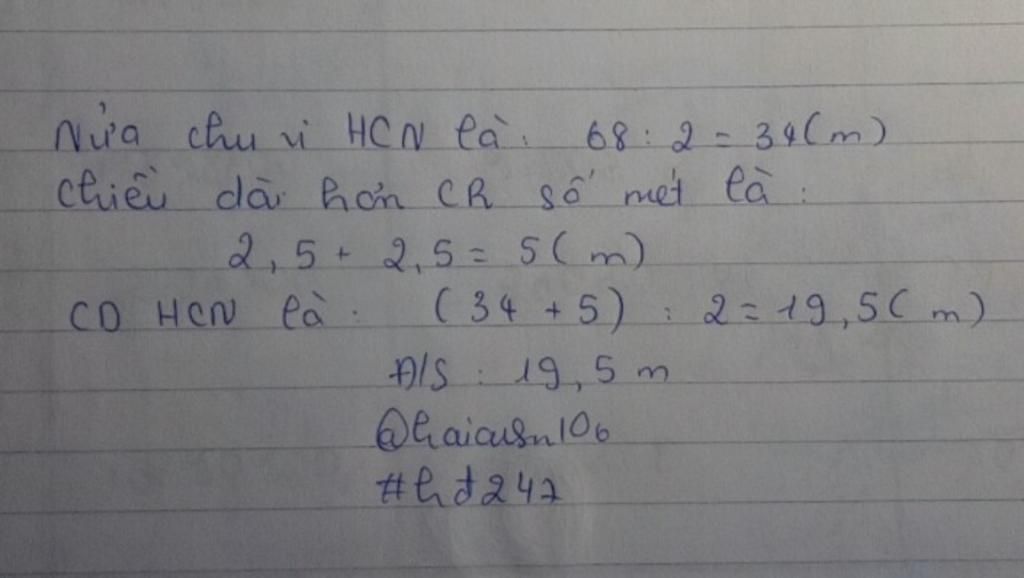 Nửa chu vi HCN là: 68 : 2 = 34 (m)
Chiều dài hơn CR số mét là:
2,5 + 2,5 = 5 (m)
CD HCN là: (34 + 5) : 2 = 19,5 (m)
Đ/S: 19,5 m
#hđ247